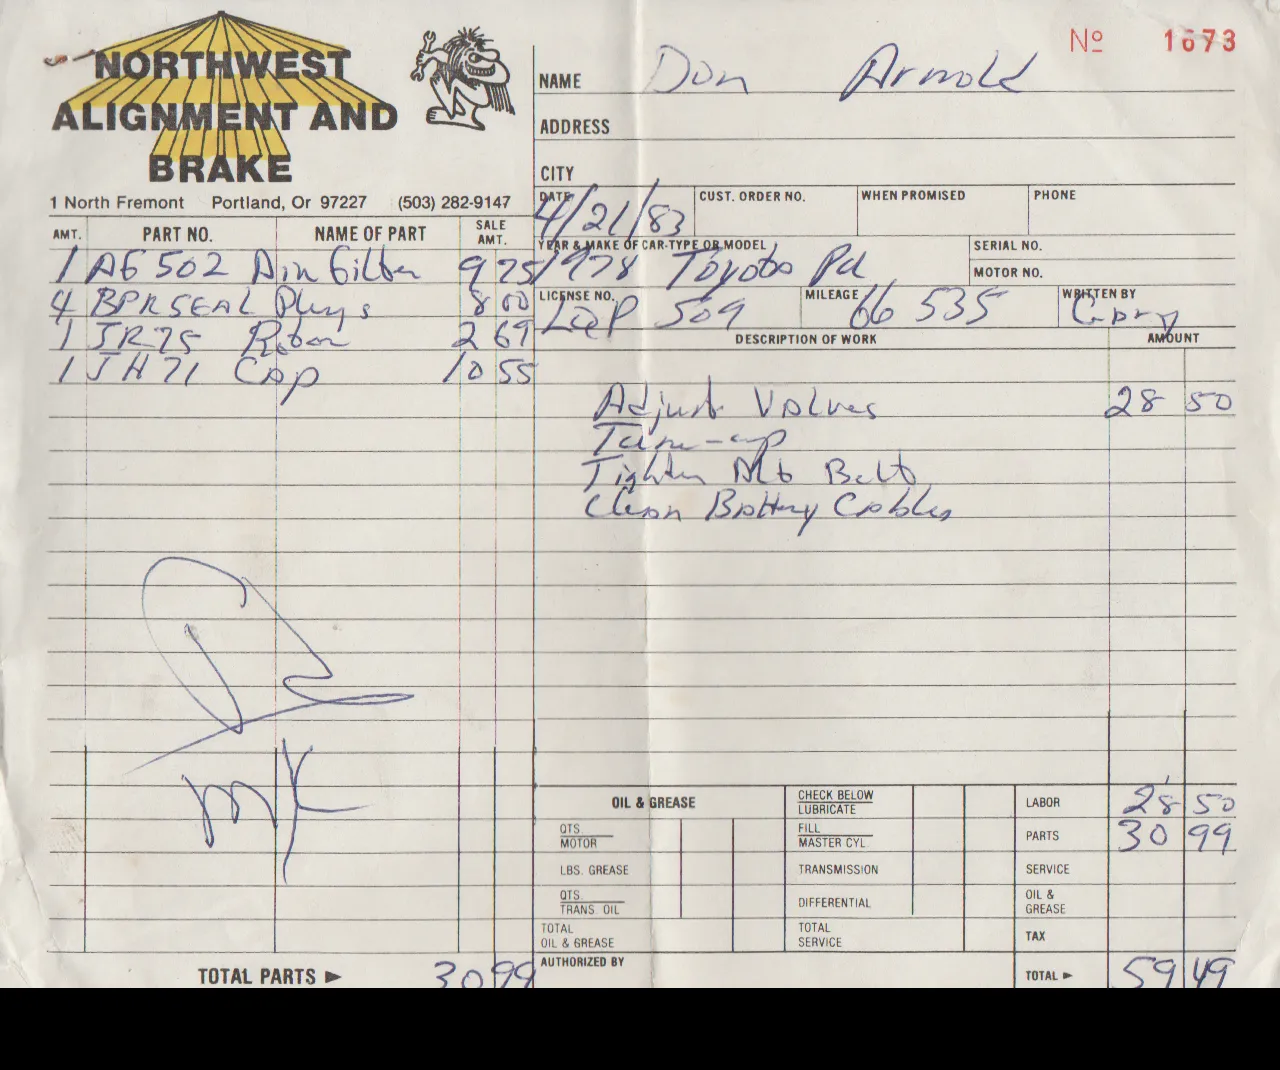 NORTHWEST
ALIGNMENT AND
BRAKE
1 North Fremont Portland, Or 97227 (503) 282-9147
Nº 1673
NAME Don Arnold
ADDRESS
CITY
DATE 4/21/83 CUST. ORDER NO. WHEN PROMISED PHONE
YEAR & MAKE OF CAR-TYPE OR MODEL 1978 Toyota SERIAL NO.
MOTOR NO.
LICENSE NO. 509 MILEAGE 66 535 WRITTEN BY
AMT. PART NO. NAME OF PART SALE AMT.
1 AF 502 Air Filter 9 75
4 Plugs 8 00
1 JR75 Rotor 2 69
1 JH71 Cap 10 55
TOTAL PARTS 30 99
DESCRIPTION OF WORK AMOUNT
Adjust Valves 28 50
Tune-up
Tighten Alt Belt
Clean Battery Cables
OIL & GREASE
QTS. MOTOR
LBS. GREASE
QTS. TRANS. OIL
TOTAL OIL & GREASE
CHECK BELOW
LUBRICATE
FILL MASTER CYL.
TRANSMISSION
DIFFERENTIAL
TOTAL SERVICE
LABOR 28 50
PARTS 30 99
SERVICE
OIL & GREASE
TAX
AUTHORIZED BY
TOTAL 59 49